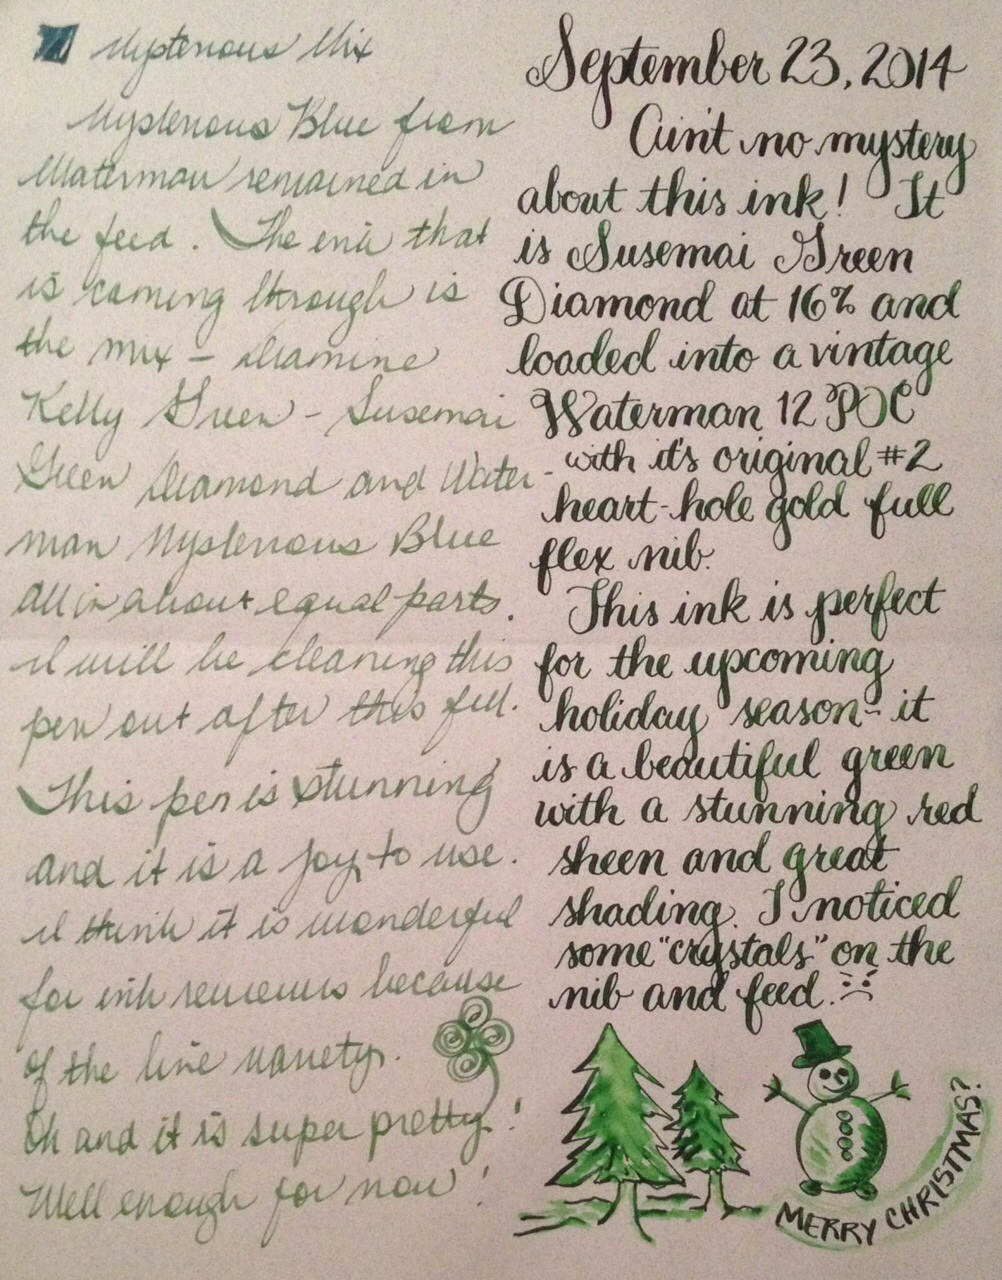 Mysterious Mix
Mysterious Blue from
Waterman remained in
the feed. The ink that
is coming through is
the mix - Diamine
Kelly Green - Susemai
Green Diamond and Water-
man Mysterious Blue
All in about equal parts.
I will be cleaning this
pen out after this fill.
This pen is stunning
and it is a joy to use.
I think it is wonderful
for ink reviews because
of the line variety.
Oh and it is super pretty!
Well enough for now!
September 23, 2014
Ain't no mystery
about this ink! It
is Susemai Green
Diamond at 16% and
loaded into a vintage
Waterman 12 POC
with it's original #2
heart-hole gold full
flex nib.
This ink is perfect
for the upcoming
holiday season - it
is a beautiful green
with a stunning red
sheen and great
shading. I noticed
some "crystals" on the
nib and feed.
MERRY CHRISTMAS?